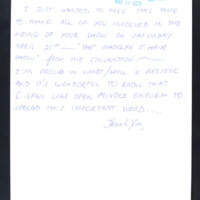 I JUST WANTED TO TAKE THIS TIME
TO THANK ALL OF YOU INVOLVED IN THE
AIRING OF YOUR SHOW ON SATURDAY
APRIL 21ST — "THE
SHOW" FROM THE CONVENTION
I'M PROUD IN WHAT/WHO I BELIEVE
AND IT'S WONDERFUL TO KNOW THAT
C-SPAN WAS OPEN MINDED ENOUGH TO
SPREAD THIS IMPORTANT WORD....
Thank You,